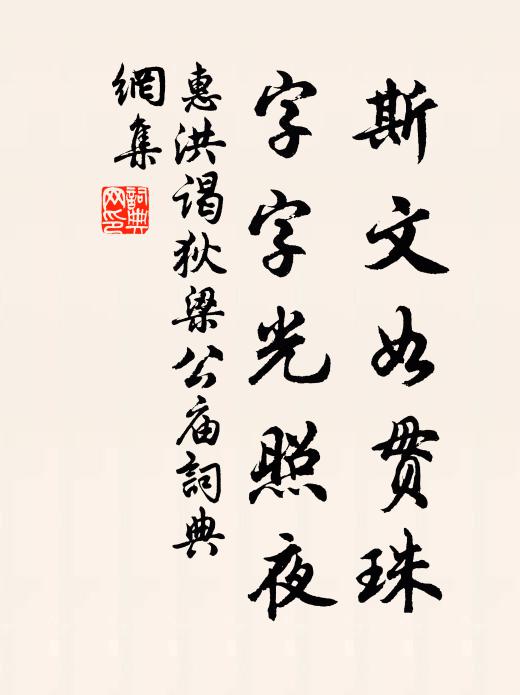 斯文如貫珠
字字光照夜
惠洪谒狄梁公庙詞典
網集
詞典网印